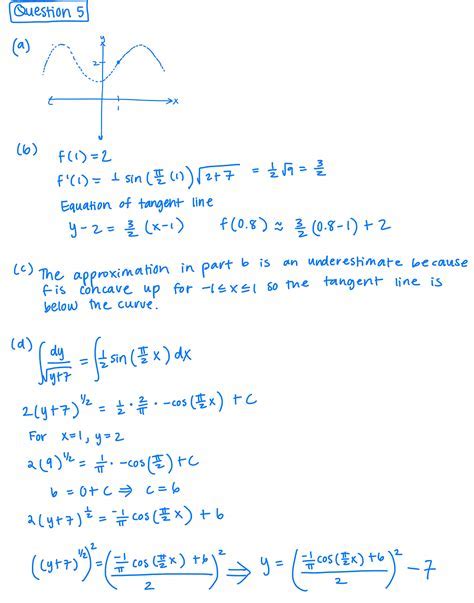 Question 5
(a)
y
2
x
1
(b) f(1)=2
f'(1) = 1/2 sin(π/2 (1)) √(2+7) = 1/2 √9 = 3/2
Equation of tangent line
y-2 = 3/2 (x-1)    f(0.8) ≈ 3/2 (0.8-1) + 2
(c) The approximation in part b is an underestimate because
f is concave up for -1≤x≤1 so the tangent line is
below the curve.
(d) ∫ dy/√(y+7) = ∫ 1/2 sin(π/2 x) dx
2(y+7)^(1/2) = 1/2 · 2/π · -cos(π/2 x) + C
For x=1, y=2
2(9)^(1/2) = 1/π · -cos(π/2) + C
6 = 0+C ⇒ C=6
2(y+7)^(1/2) = -1/π cos(π/2 x) + 6
((y+7)^(1/2))^2 = ((-1/π cos(π/2 x) + 6)/2)^2 ⇒ y = ((-1/π cos(π/2 x) + 6)/2)^2 - 7